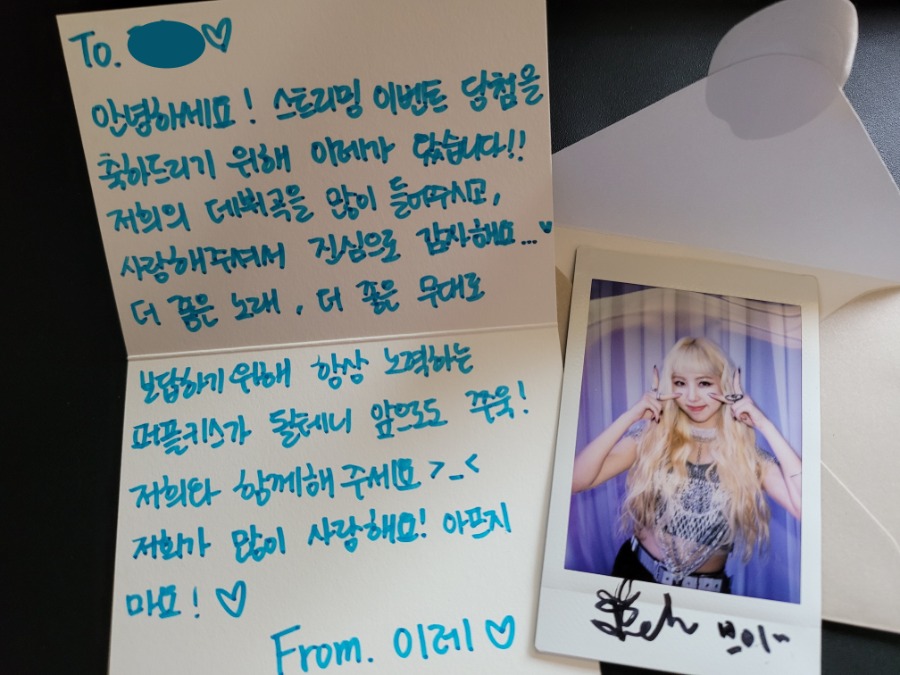 To. ♡
안녕하세요! 스트리밍 이벤트 당첨을
축하드리기 위해 이레가 왔습니다!!
저희의 데뷔곡을 많이 들어주시고,
사랑해주셔서 진심으로 감사해요...♥
더 좋은 노래, 더 좋은 무대로
보답하기위해 항상 노력하는
퍼플키스가 될테니 앞으로도 쭈욱!
저희와 함께해주세요 >_<
저희가 많이 사랑해요! 아프지
마요! ♡
From. 이레 ♡
브이~